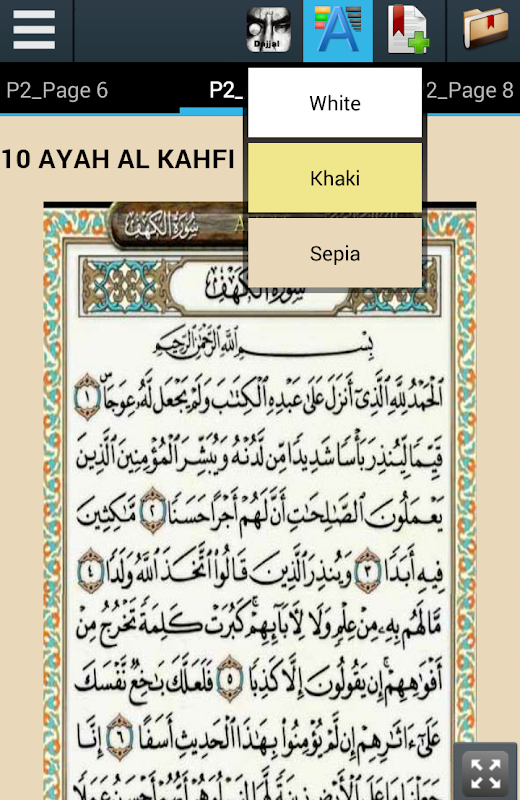 Dajjal
A
P2_Page 6
P2_
2_Page 8
White
Khaki
Sepia
10 AYAH AL KAHFI
سُورَةُ الْكَهْفِ
A
سُورَةُ الْكَهْفِ
بِسْمِ اللَّهِ الرَّحْمَٰنِ الرَّحِيمِ
الْحَمْدُ لِلَّهِ الَّذِي أَنْزَلَ عَلَىٰ عَبْدِهِ الْكِتَابَ وَلَمْ يَجْعَلْ لَهُ عِوَجًا ۜ ١
قَيِّمًا لِيُنْذِرَ بَأْسًا شَدِيدًا مِنْ لَدُنْهُ وَيُبَشِّرَ الْمُؤْمِنِينَ الَّذِينَ
يَعْمَلُونَ الصَّالِحَاتِ أَنَّ لَهُمْ أَجْرًا حَسَنًا ٢ مَاكِثِينَ
فِيهِ أَبَدًا ٣ وَيُنْذِرَ الَّذِينَ قَالُوا اتَّخَذَ اللَّهُ وَلَدًا ٤
مَا لَهُمْ بِهِ مِنْ عِلْمٍ وَلَا لِآبَائِهِمْ ۚ كَبُرَتْ كَلِمَةً تَخْرُجُ مِنْ
أَفْوَاهِهِمْ ۚ إِنْ يَقُولُونَ إِلَّا كَذِبًا ٥ فَلَعَلَّكَ بَاخِعٌ نَفْسَكَ
عَلَىٰ آثَارِهِمْ إِنْ لَمْ يُؤْمِنُوا بِهَٰذَا الْحَدِيثِ أَسَفًا ٦ إِنَّا
جَعَلْنَا مَا عَلَى الْأَرْضِ زِينَةً لَهَا لِنَبْلُوَهُمْ أَيُّهُمْ أَحْسَنُ عَمَلًا